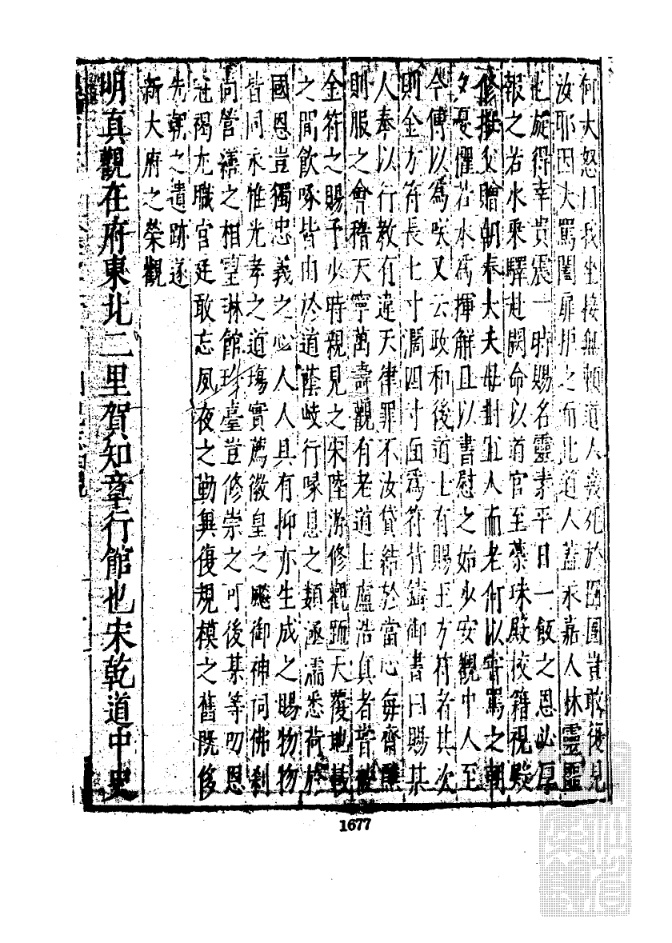 何大怒曰我坐接無賴道人幾死於囹圄豈敢復見
汝耶因大罵闔扉拒之而此道人蓋永嘉人林靈噩
也旋得幸貴震一時賜名靈素平日一飯之恩必厚
報之若水乘驛赴闕命以道官至蘂珠殿校籍視殿
修撰父贈朝奉大夫母封宜人而老何以嘗罵之朝
夕憂懼若水為揮解且以書慰之始少安觀中人至
今傳以為笑又云政和後道士有賜玉方符者其次
則金方符長七寸濶四寸面為符背鑄御書曰賜某
人奉以行教有違天律罪不汝貸結於當心每齋醮
則服之會稽天寧萬壽觀有老道士盧浩真者嘗被
金符之賜予少時親見之宋陸游修觀疏天覆地載
之間飲啄皆由於道蔭岐行喙息之類涵濡悉荷於
國恩豈獨忠義之心人人具有抑亦生成之賜物物
皆同永惟光孝之道塲實薦徽皇之飈御神祠佛刹
尚管 之相望琳館珍臺豈修崇之可後某等叨恩
冠褐 職官廷敢忘夙夜之勤興復規模之舊既侈
先朝之遺跡遂
新大府之榮觀
明真觀在府東北二里賀知章行館也宋乾道中史
1677